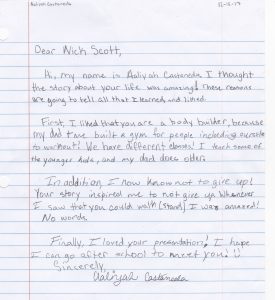 Aaliyah Castaneda
Dear Nick Scott,
Hi, my name is Aaliyah Castaneda. I thought
the story about your life was amazing! These reasons
are going to tell all that I learned and liked.
First, I liked that you are a body builder, because
my dad built a gym for people including ourselves
to workout! We have different classes! I teach some of
the younger kids, and my dad does older.
In addition, I now know not to give up!
Your story inspired me to not give up. Whenever
I saw that you could walk (stand) I was amazed!
No words.
Finally, I loved your presentation! I hope
I can go after school to meet you! :)
Sincerely,
Aaliyah Castaneda